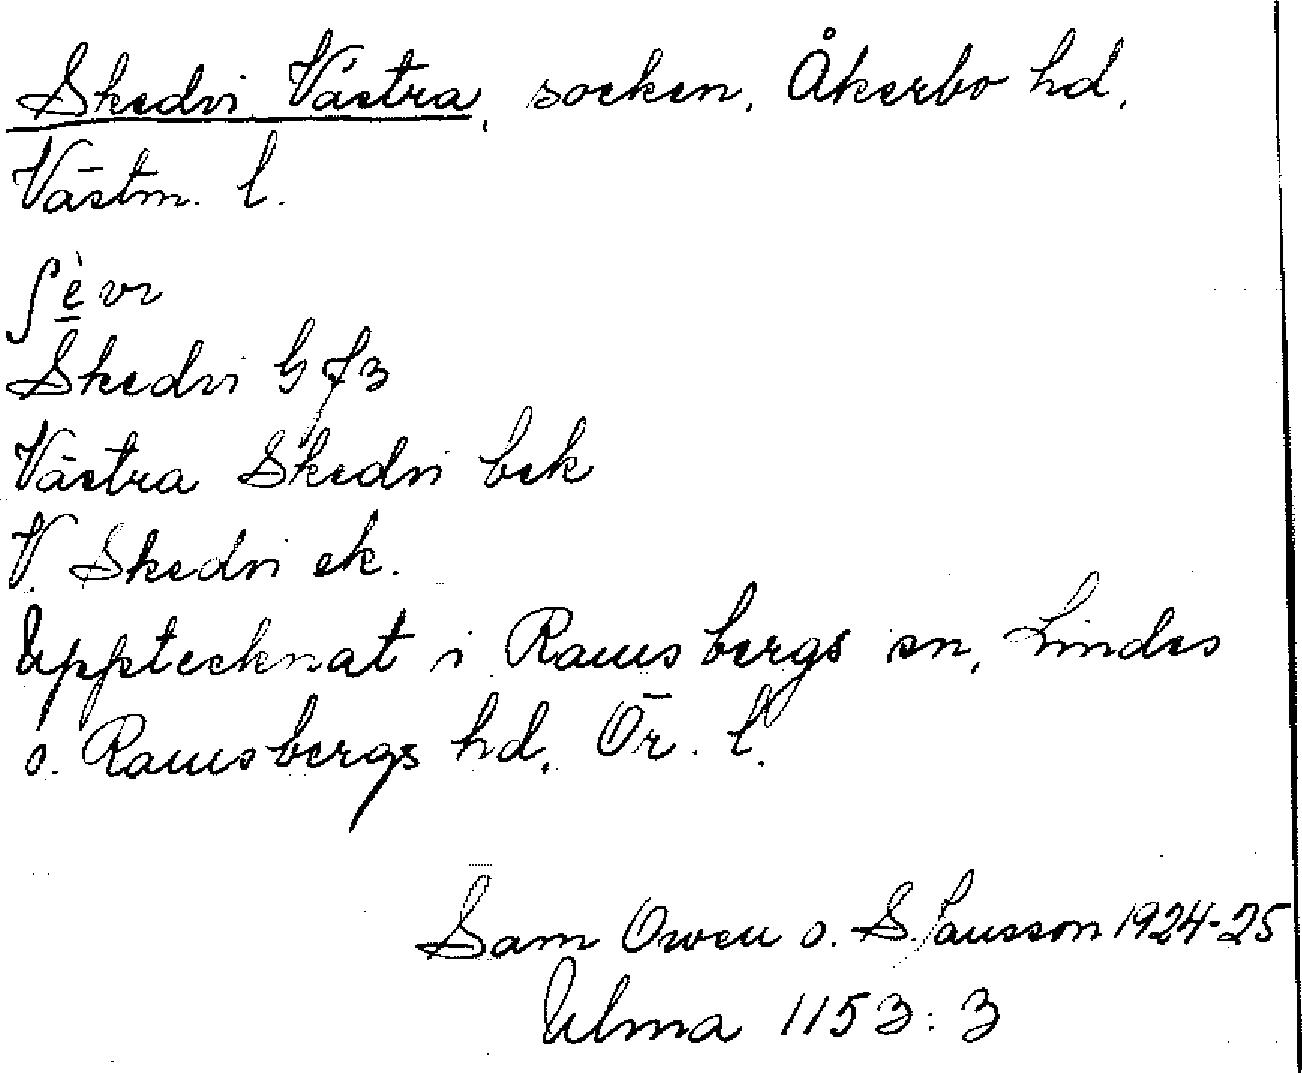 Skedvi Västra, socken, Åkerbo hd,
Västm. l.
ʃèvı
Skedvi G f3
Västra Skedvi bek
V. Skedvi ek.
Upptecknat i Ramsbergs sn, Lindes
o. Ramsbergs hd, Ör. l.
Sam Owen o. S. Jansson 1924-25
Ulma 1153:3